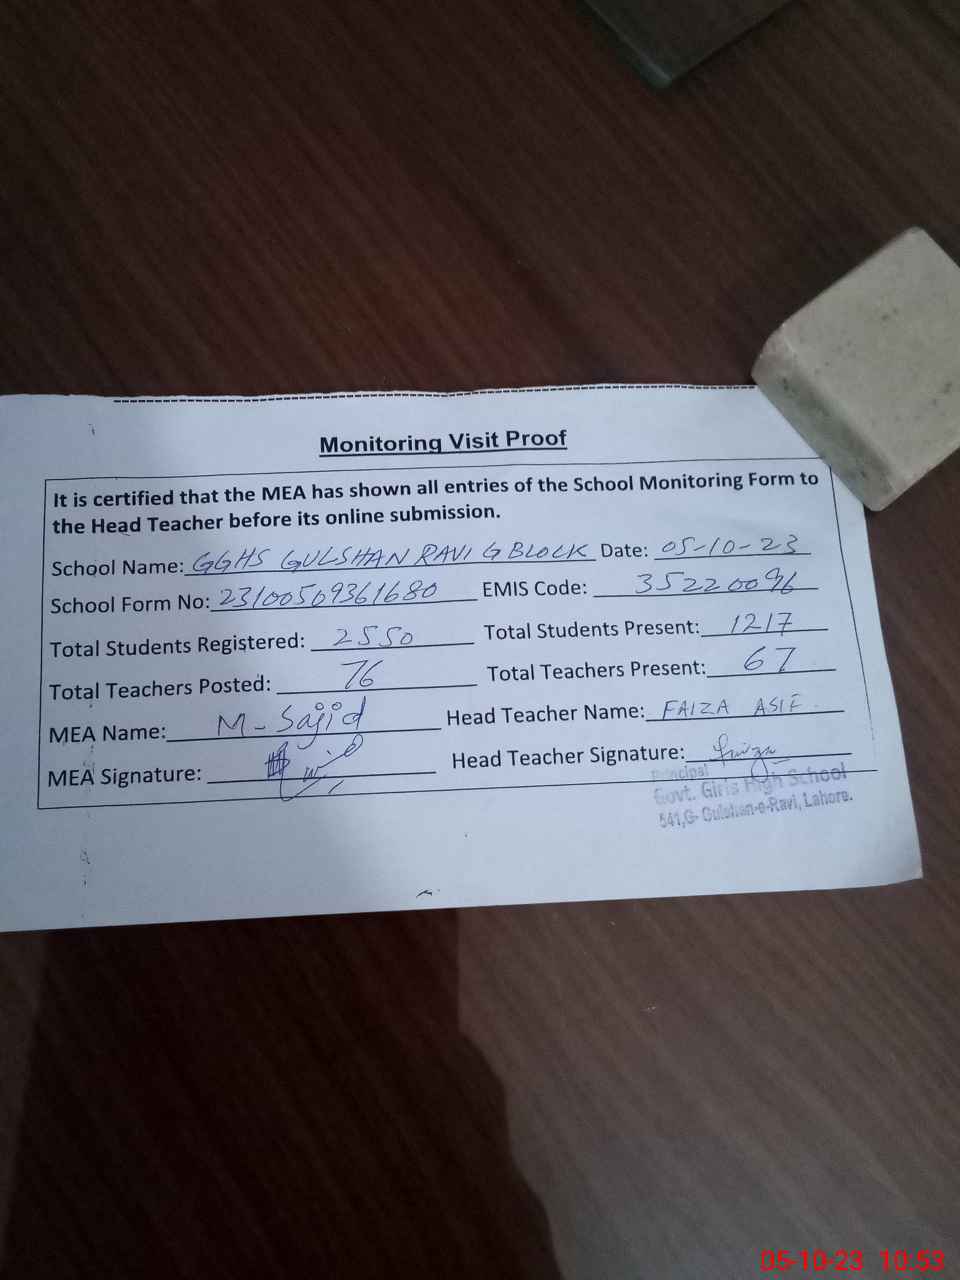 Monitoring Visit Proof
It is certified that the MEA has shown all entries of the School Monitoring Form to
the Head Teacher before its online submission.
School Name: GGHS GULSHAN RAVI G BLOCK Date: 05-10-23
School Form No: 23100509361680 EMIS Code: 35220096
Total Students Registered: 2550 Total Students Present: 1217
Total Teachers Posted: 76 Total Teachers Present: 67
MEA Name: M-Sajid Head Teacher Name: FAIZA ASIF
MEA Signature: Head Teacher Signature: Faiza
Principal
Govt. Girls High School
541,G- Gulshan-e-Ravi, Lahore.
05-10-23 10:53